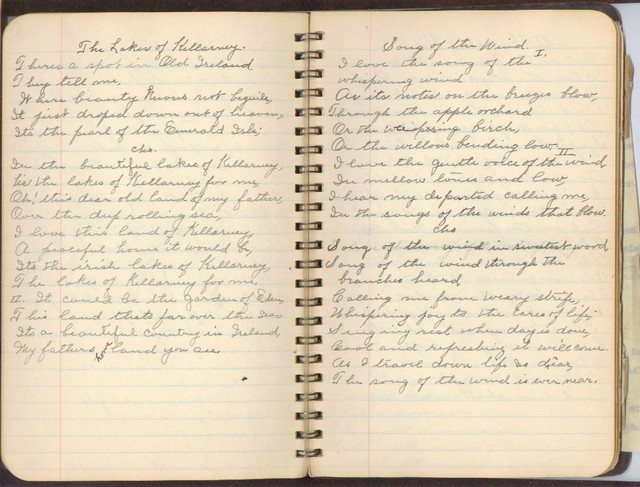 The Lakes of Killarney.
Theres a spot in Old Ireland
They tell me,
Where beauty knows not beguile,
It just droped down out of heaven,
Its the pearl of the Emerald Isle;
cho.
In the beautiful lakes of Killarney,
tis the lakes of Killarney for me,
Oh! this dear old land of my father,
Over the deep rolling sea,
I love this land of Killarney,
A peaceful home it would be,
Its the irish lakes of Killarney,
The lakes of Killarney for me.
II. It could be the Garden of Eden,
This land thats far over the sea
Its a beautiful country in Ireland
My fathers dear land you see.
Song of the Wind.
I.
I love the song of the
whispering wind
As its notes on the breezes blow,
Through the apple orchard
Or the whispering birch,
Or the willows bending low.
II
I love the gentle voice of the wind
In mellow tones and low,
I hear my departed calling me,
In the songs of the winds that blow.
cho
Song of the wind in sweetest word
Song of the wind through the
branches heard
Calling me from weary strife,
Whispering joy to the cares of life;
Singing rest when day is done,
Cool and refreshing it will come.
As I travel down life so dear,
The song of the wind is ever near.